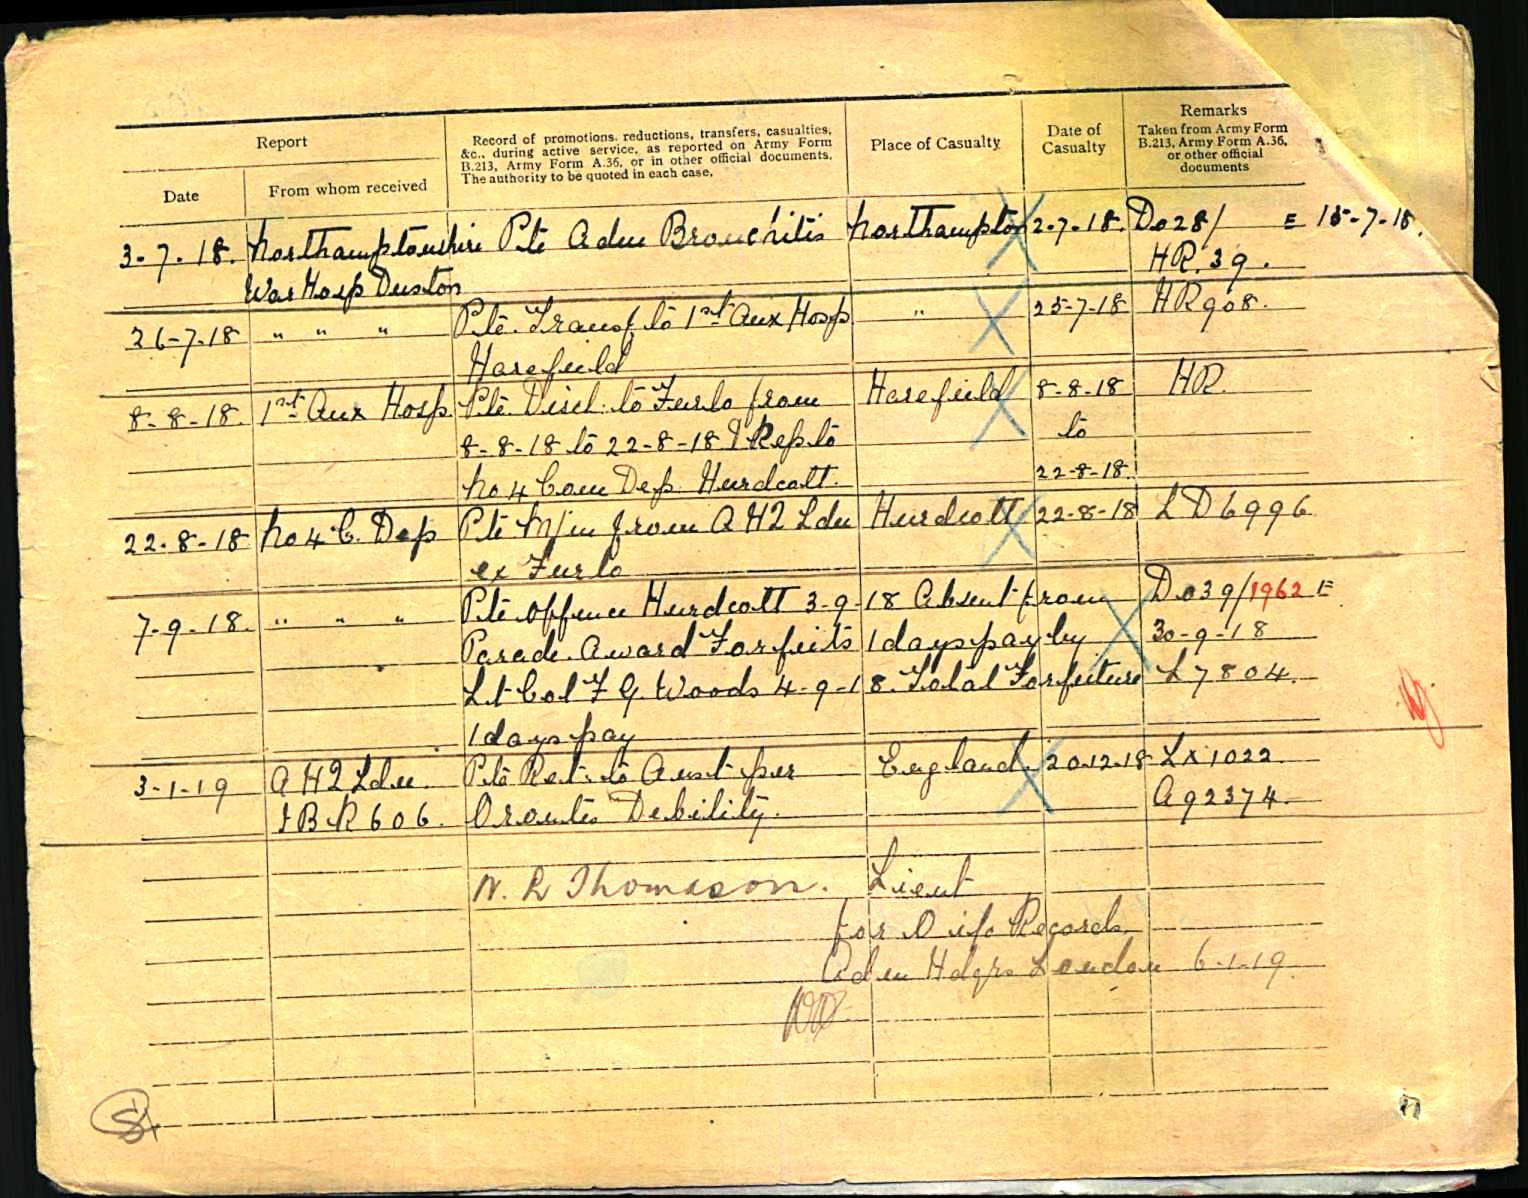 Report
Record of promotions, reductions, transfers, casualties,
&c., during active service, as reported on Army Form
B.213, Army Form A.36, or in other official documents.
The authority to be quoted in each case.
Place of Casualty
Date of
Casualty
Remarks
Taken from Army Form
B.213, Army Form A.36,
or other official
documents
Date
From whom received
3-7-18. Northamptonshire Pte Adm Bronchitis Northampton 2-7-18. Do28/ E 15-7-18.
War Hosp Duston HR.39.
26-7-18 " " " Pte. Transf to 1st Aux Hosp " 25-7-18 HR908.
Harefield
8-8-18. 1st Aux Hosp Pte. Disch. to Furlo from Harefield 8-8-18 HR.
8-8-18 to 22-8-18 & Rep to to
No 4 Com Dep. Hurdcott. 22-8-18.
22-8-18 No 4 C. Dep Pte M/in from A H Q Ldn Hurdcott 22-8-18 LD6996
ex Furlo
7-9-18. " " " Pte offence Hurdcott 3-9-18 Absent from Do39/1962 E
Parade. Award Forfeits 1 days pay by 30-9-18
Lt Col F G. Woods 4-9-18. Total Forfeiture L7804.
1 days pay
3-1-19 A H Q Ldn. Pte Ret. to Aust per England. 20.12.18 LX1022.
IBR 606. Orontes Debility. A92374.
N. R Thomason. Lieut
for O i/c Records
Adm Hdqrs London 6-1-19.